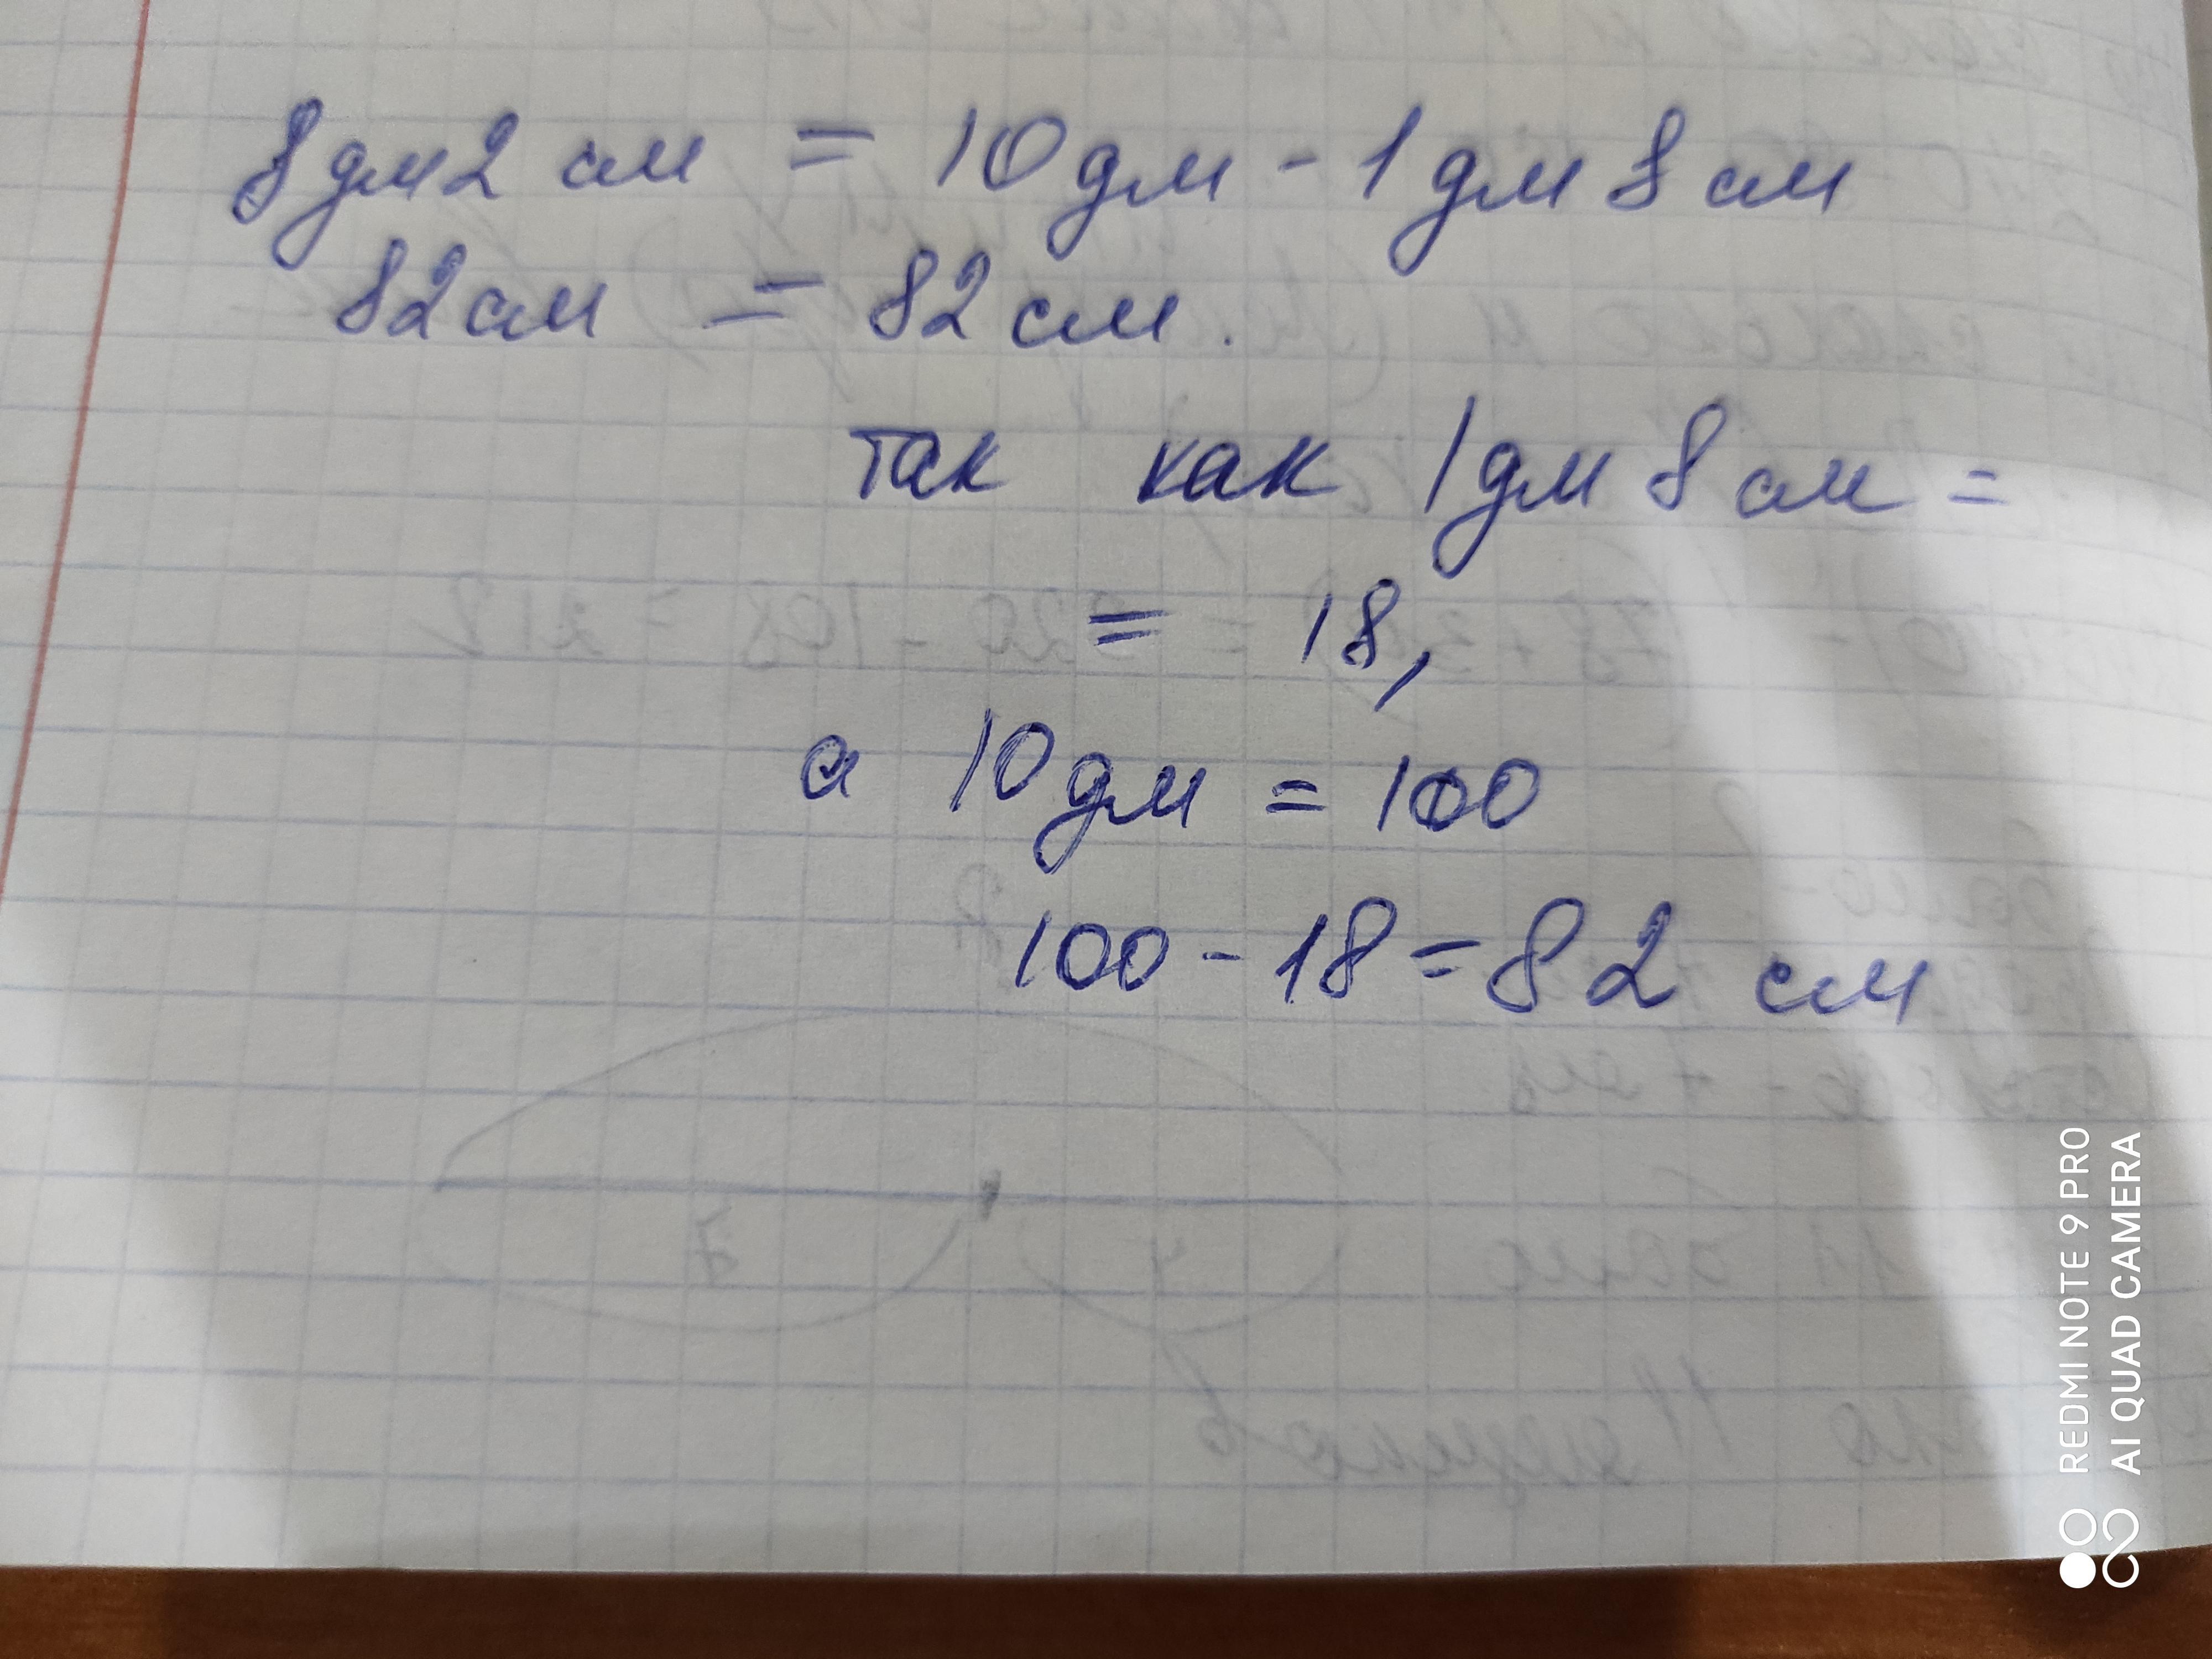 8 дм 2 см = 10 дм - 1 дм 8 см
82 см = 82 см.
так как 1 дм 8 см =
= 18,
а 10 дм = 100
100 - 18 = 82 см
REDMI NOTE 9 PRO
AI QUAD CAMERA